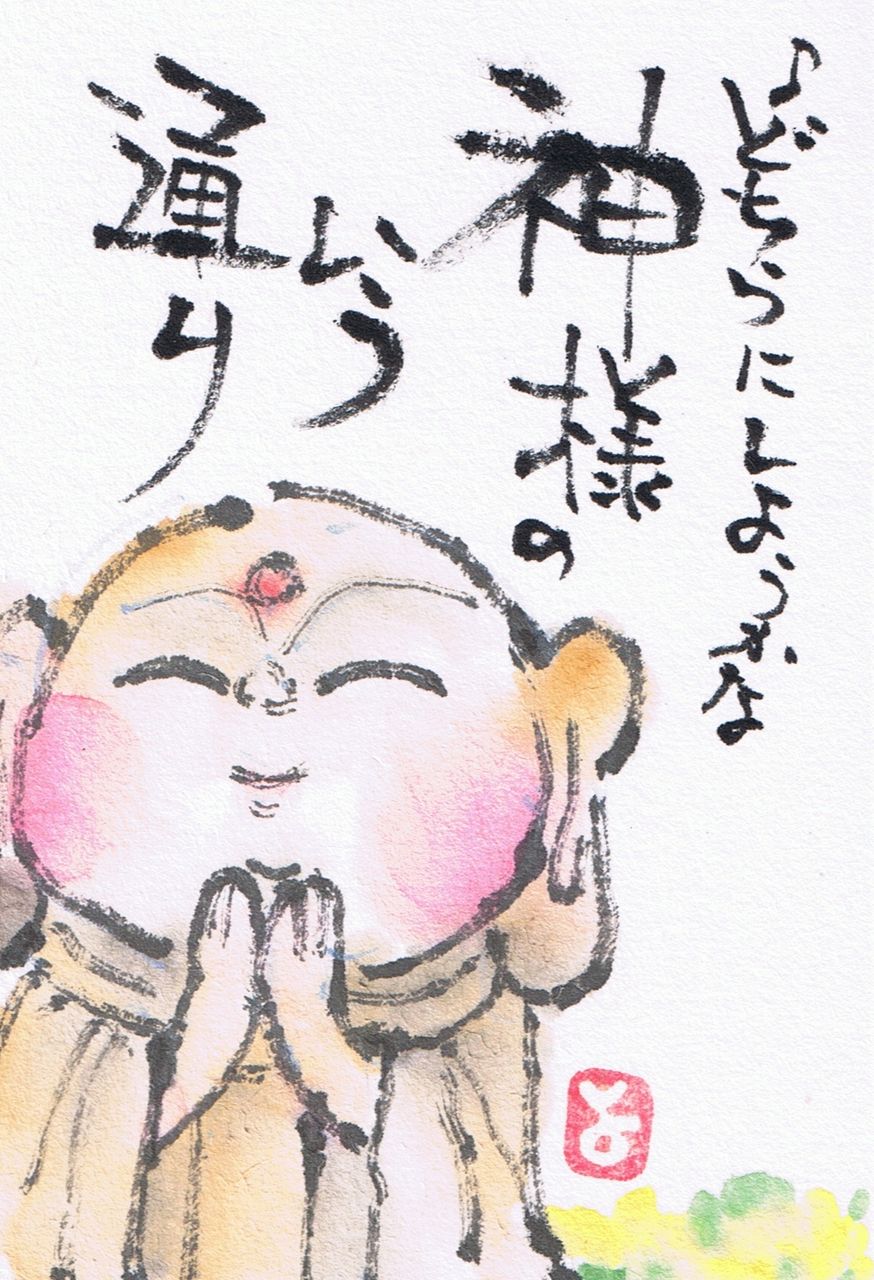 ♪どちらにしようかな
神様の
いう
通り
よ